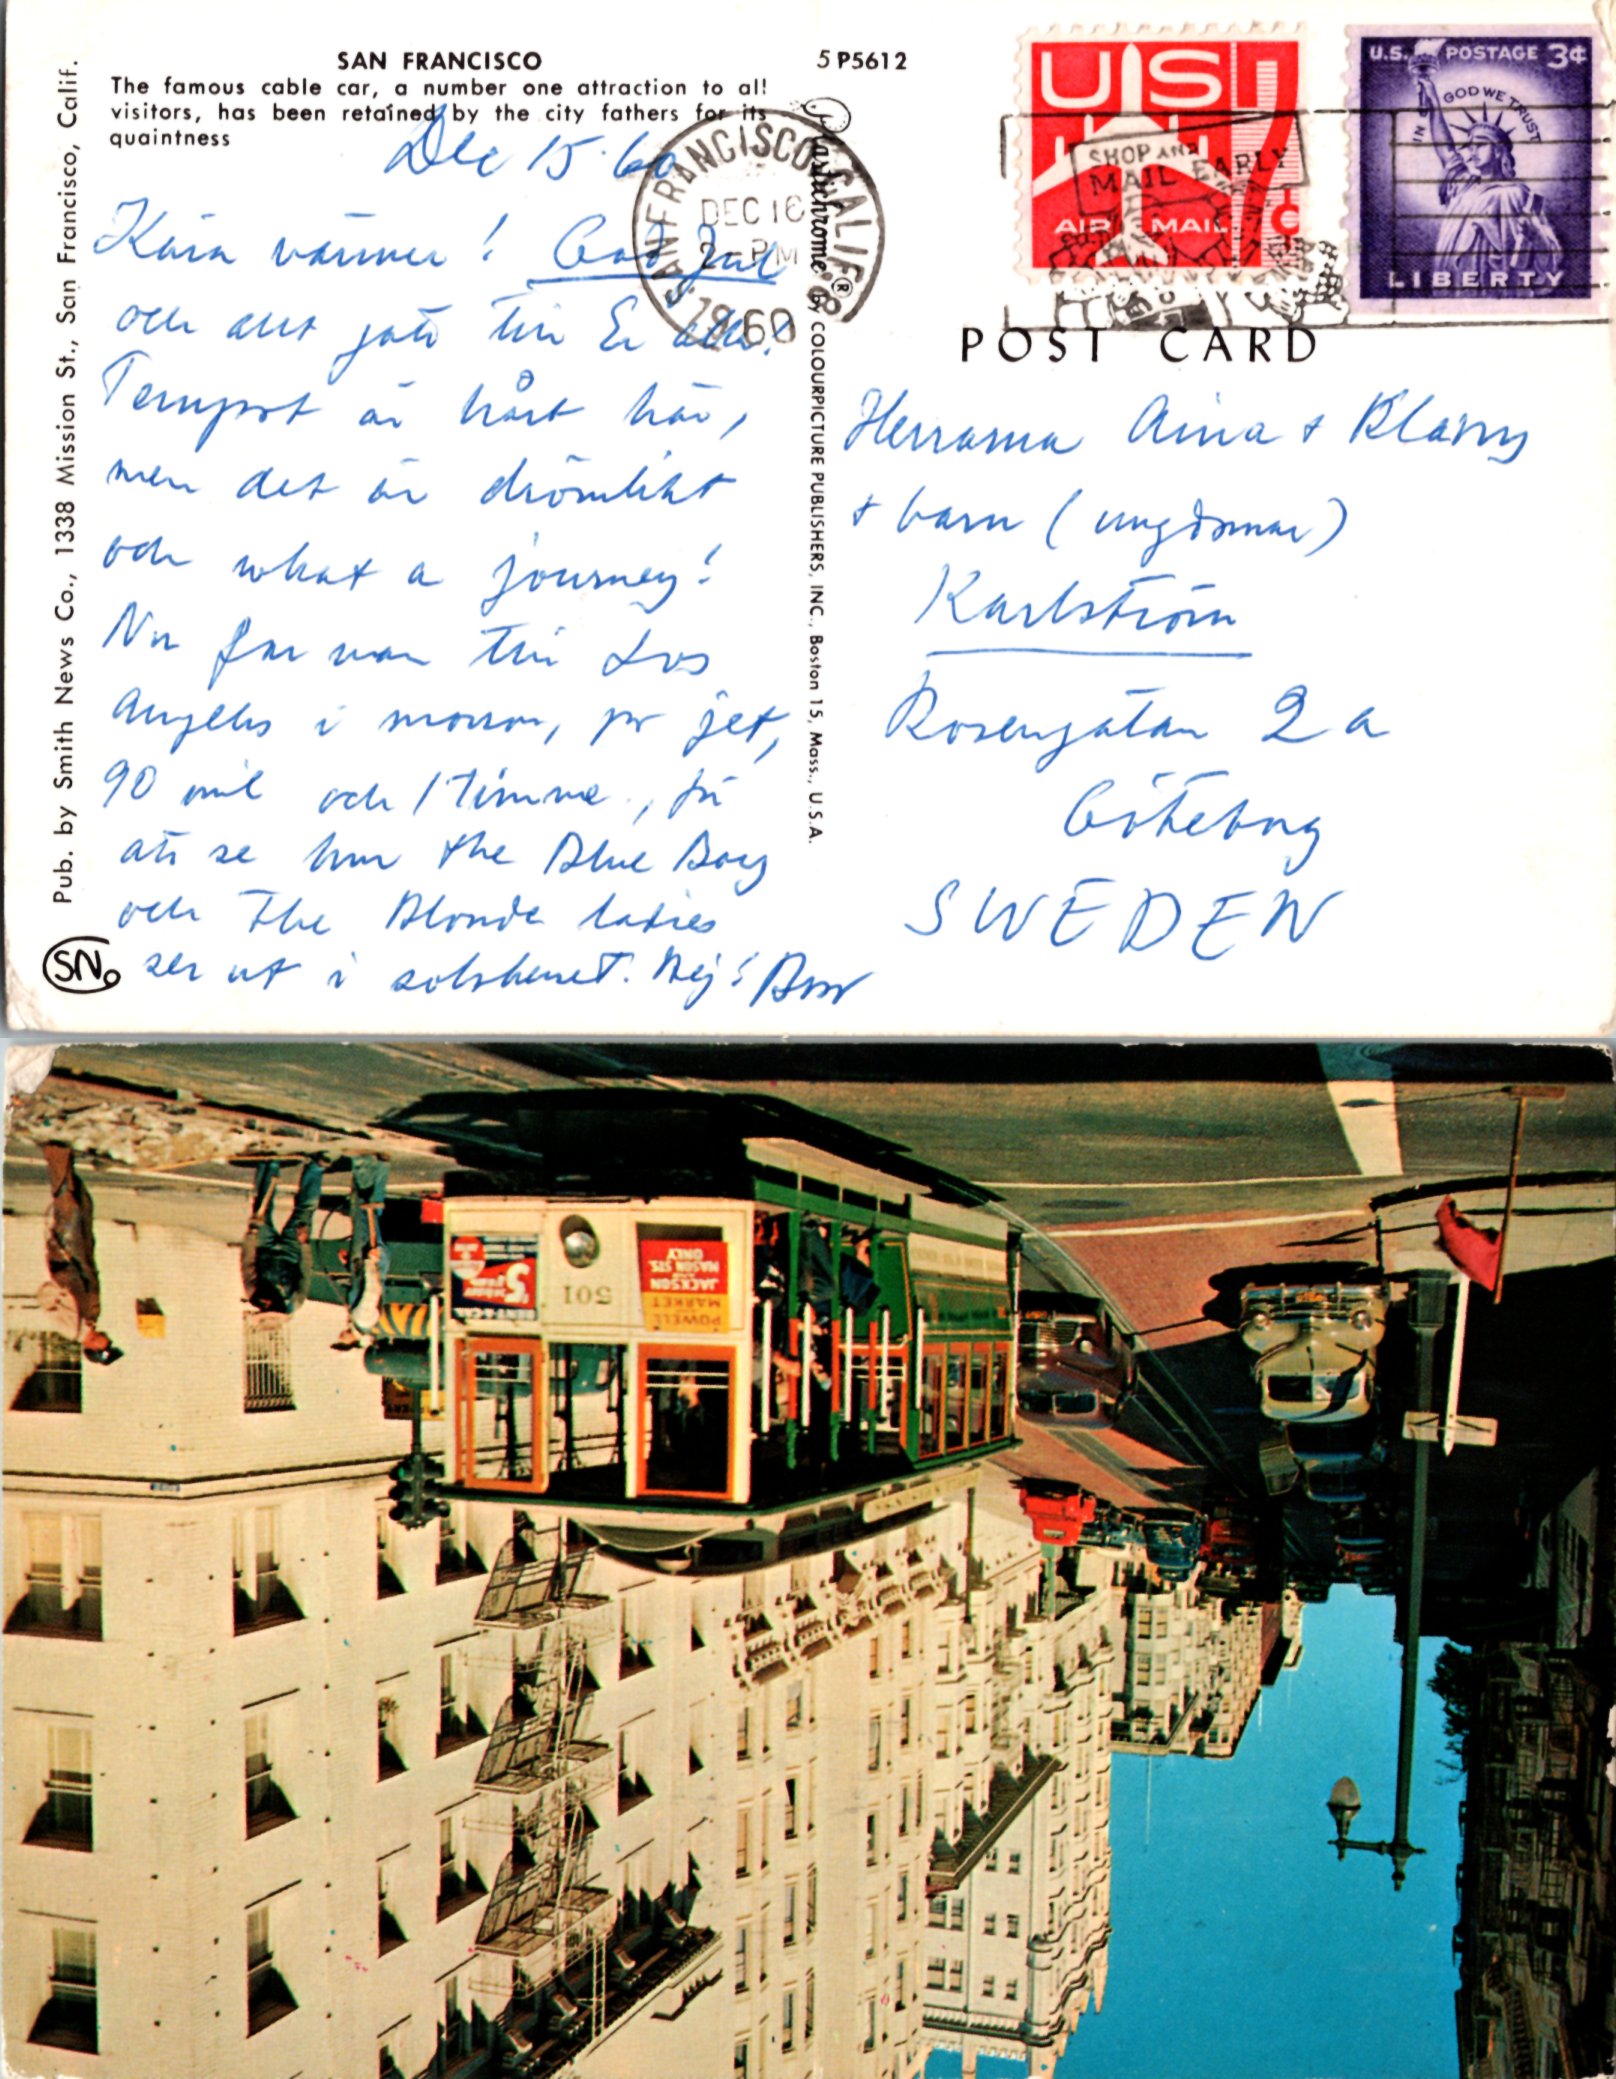 SAN FRANCISCO
The famous cable car, a number one attraction to all
visitors, has been retained by the city fathers for its
quaintness
5 P5612
Pub. by Smith News Co., 1338 Mission St., San Francisco, Calif.
SN
Dec 15. 60
Kära vänner! God Jul
och allt gott till Er alla!
Tempot är hårt här,
men det är drömlikt
och what a journey!
Nu far man till Los
Angeles i morron, pr jet,
90 mil och 1 timme, för
att se hur the Blue Boy
och The Blonde ladies
ser ut i solskenet. Hej!
Plastichrome ® by COLOURPICTURE PUBLISHERS, INC., Boston 15, Mass., U.S.A.
SAN FRANCISCO, CALIF.
DEC 16
2-PM
1960
SHOP AND
MAIL EARLY
US
AIR MAIL
7¢
U.S. POSTAGE 3¢
IN GOD WE TRUST
LIBERTY
POST CARD
Herrarna Aina + Klärry
+ barn (ungdomar)
Karlström
Rosengatan 2 a
Göteborg
SWEDEN
501
POWELL
MARKET
JACKSON
AND
MASON STS.
ONLY
5